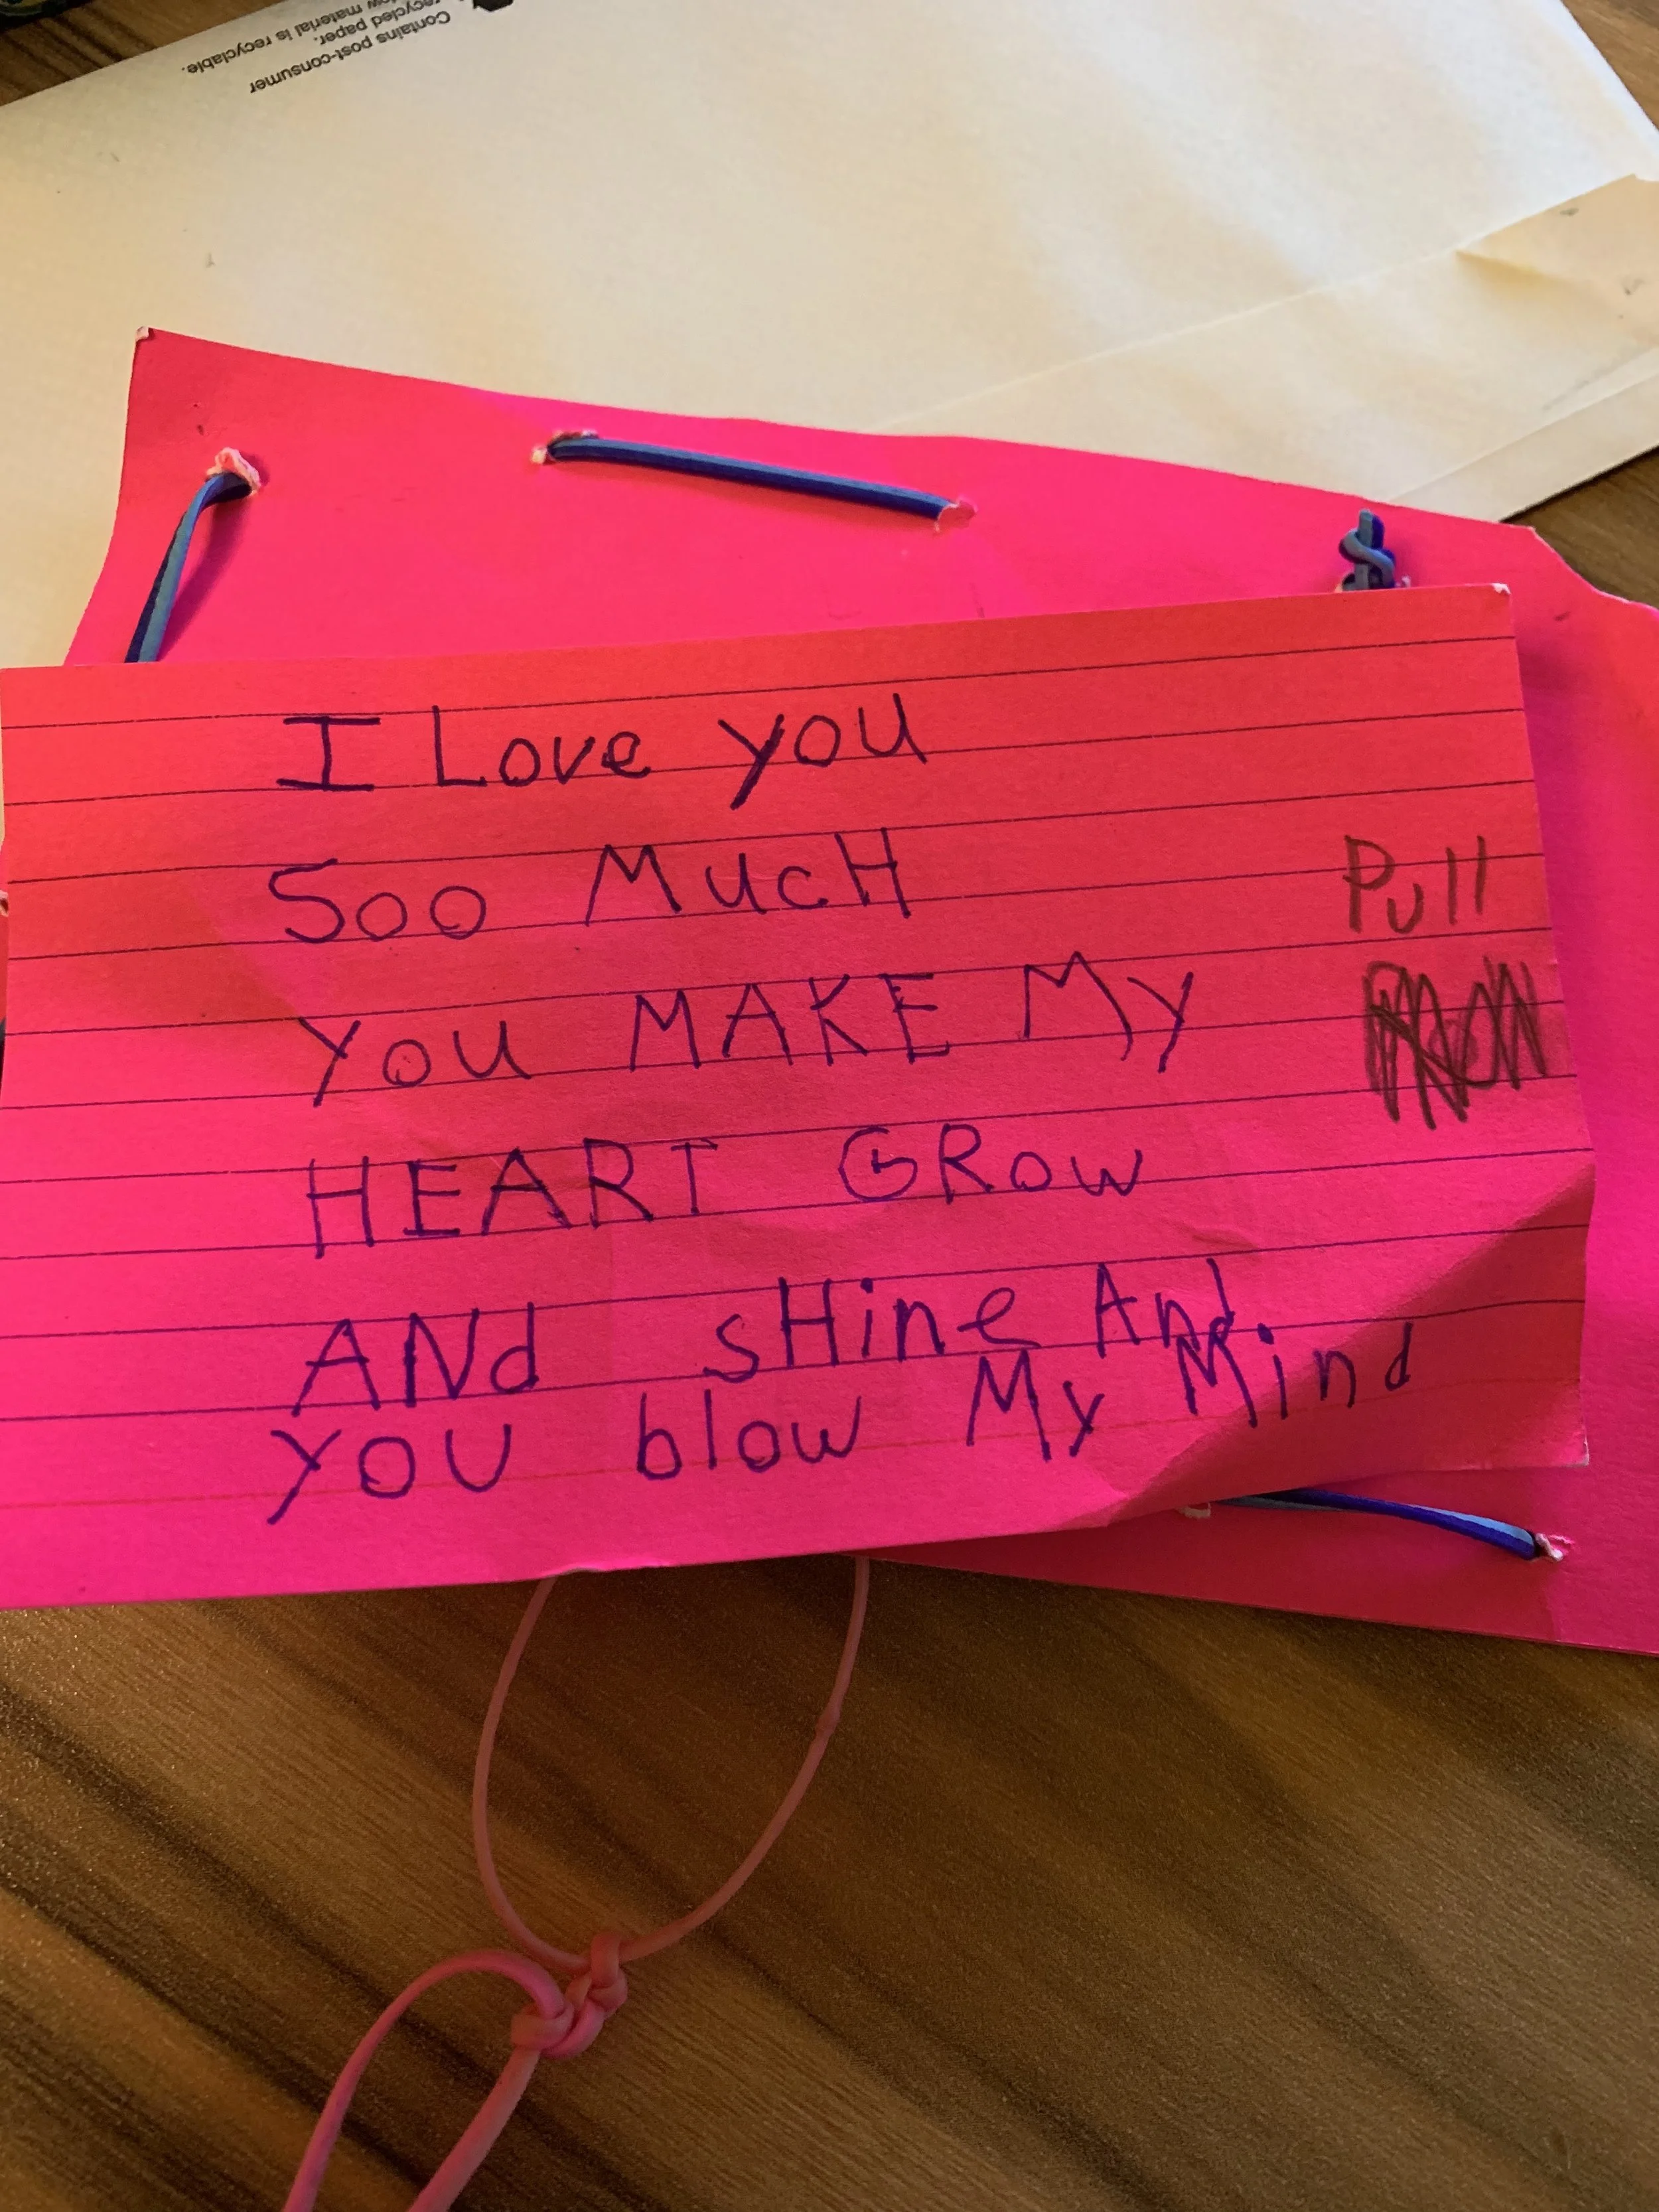 Contains post-consumer
recycled paper.
material is recyclable.
I Love you
Soo MucH
Pull
you MAKE My
HEART GRow
ANd sHine And
you blow My Mind